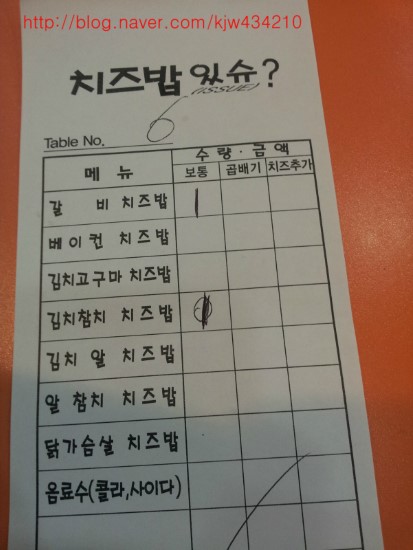 http://blog.naver.com/kjw434210
치즈밥 있슈?
(ISSUE)
6
Table No.
메 뉴
수 량 · 금 액
보통 곱배기 치즈추가
갈 비 치즈밥 1
베이컨 치즈밥
김치고구마 치즈밥
김치참치 치즈밥
김치 알 치즈밥
알 참치 치즈밥
닭가슴살 치즈밥
음료수(콜라,사이다)